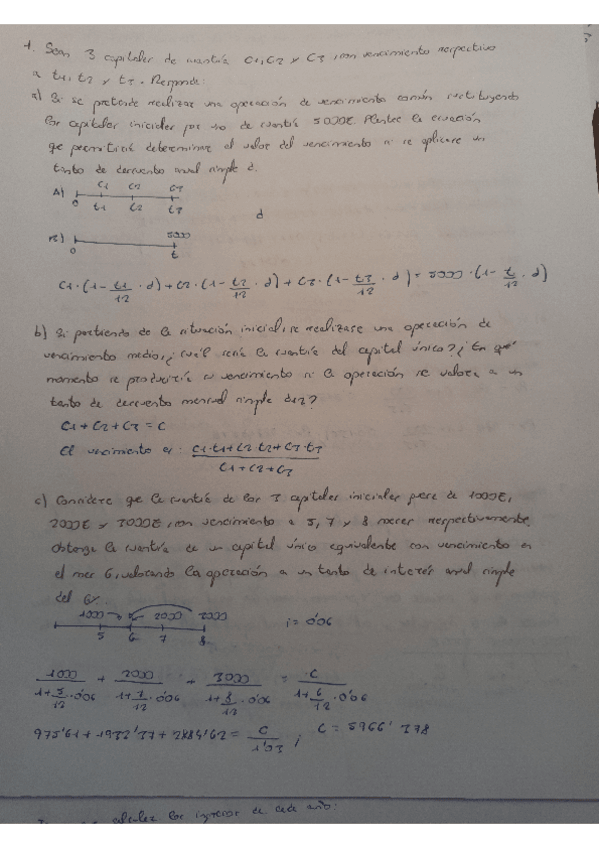 1. Sean 3 capitales de cuantía C1, C2 y C3, con vencimiento respectivo
a t1, t2 y t3. Responde:
a) Si se pretende realizar una operación de vencimiento común sustituyendo
los capitales iniciales por uno de cuantía 5000€. Plantee la ecuación
que permitiría determinar el valor del vencimiento si se aplicase un
tanto de descuento anual simple d.
A) C1 C2 C3
0 t1 t2 t3
d
B) 5000
0 t
C1·(1-t1/12·d)+C2·(1-t2/12·d)+C3·(1-t3/12·d)=5000·(1-t/12·d)
b) Si partiendo de la situación inicial, se realizase una operación de
vencimiento medio, ¿cuál sería la cuantía del capital único? ¿En qué
momento se produciría su vencimiento si la operación se valora a un
tanto de descuento mensual simple d12?
C1+C2+C3=C
El vencimiento es: C1·t1+C2·t2+C3·t3/C1+C2+C3
c) Considere que la cuantía de los 3 capitales iniciales fuera de 1000€,
2000€ y 3000€, con vencimiento a 5, 7 y 8 meses respectivamente
obtenga la cuantía de un capital único equivalente con vencimiento en
el mes 6, valorando la operación a un tanto de interés anual simple
del 6%.
1000 2000 3000
5 6 7 8
i=0'06
1000/1+5/12·0'06 + 2000/1+7/12·0'06 + 3000/1+8/12·0'06 = C/1+6/12·0'06
975'61+1932'37+2884'62=C/1'03; C=5966'378
calcular los ingresos de cada año: